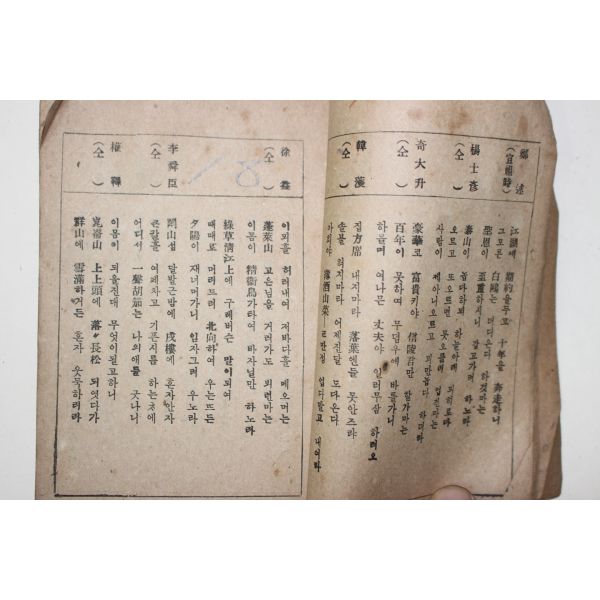 鄭逑
(宣祖時)
江湖에 期約을두고 十年을 奔走하니
그모른 白鷗는 더듸온다 하것마는
聖恩이 至重하시니 갑고가려 하노라
楊士彥
(仝)
泰山이 놉다하되 하늘아래 뫼히로다
오르고 또오르면 못오를리 업건마는
사람이 제아니오르고 뫼만놉다 하더라
奇大升
(仝)
豪華코 富貴키야 信陵君만 할가마는
百年이 못하여 무덤우에 바틀가니
하믈며 여나믄 丈夫야 일러무삼 하리오
韓濩
(仝)
집方席 내지마라 落葉엔들 못안즈랴
솔불 혀지마라 어제진달 도다온다
아희야 薄酒山菜ㄹ만정 업다말고 내여라
徐益
(仝)
이뫼흘 허러내여 저바다흘 메오며는
蓬萊山 고은님을 거러가도 뵈련마는
이몸이 精衛鳥가타여 바자닐만 하노라
綠草淸江上에 구레버슨 말이되여
때때로 머리드러 北向하여 우는뜨든
夕陽이 재너머가니 임자그려 우노라
李舜臣
(仝)
閑山섬 달발근밤에 戍樓에 혼자안자
큰칼흘 여페차고 기픈시름 하는次에
어디서 一聲胡笳는 나의애를 긋나니
權韠
(仝)
이몸이 되올진대 무엇이될고하니
崑崙山 上上頭에 落落長松 되엿다가
群山에 雪滿하거든 혼자 웃둑하리라
18